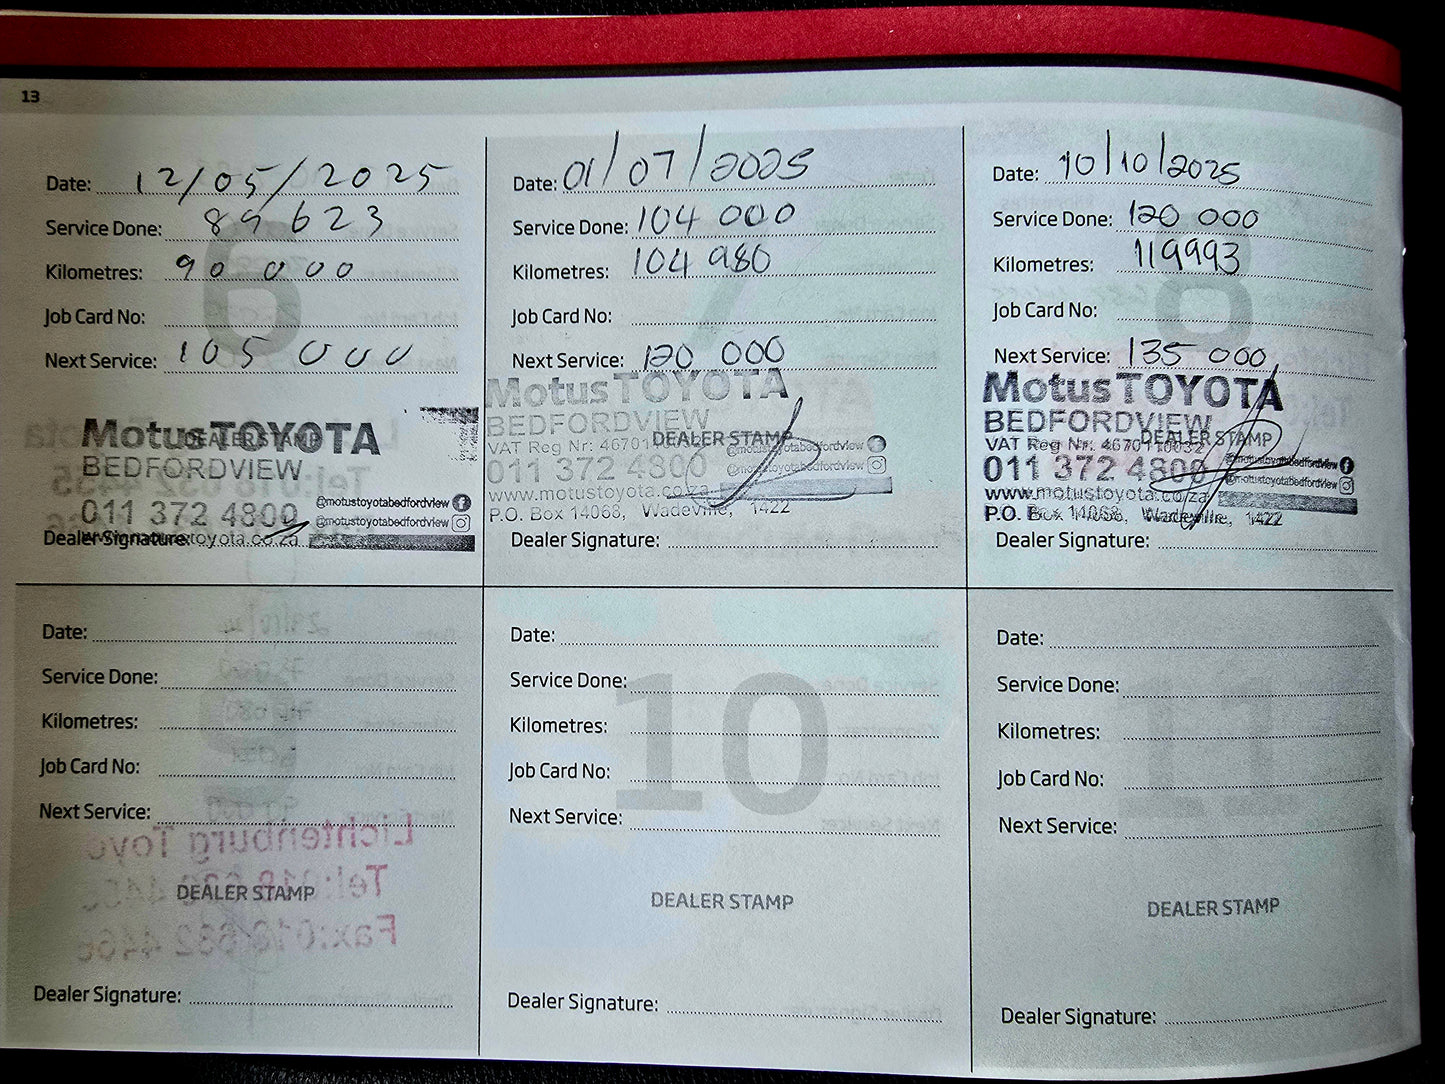 13
Date: 12/05/2025
Service Done: 89 623
Kilometres: 90 000
Job Card No:
Next Service: 105 000
MotusTOYOTA
DEALER STAMP
BEDFORDVIEW
011 372 4800
@motustoyotabedfordview
@motustoyotabedfordview
Dealer Signature:
toyota.co.za
6
Date: 01/07/2025
Service Done: 104 000
Kilometres: 104 980
Job Card No:
Next Service: 120 000
Motus TOYOTA
BEDFORDVIEW
VAT Reg Nr: 46701
DEALER STAMP
@motustoyotabedfordview
011 372 4800
@motustoyotabedfordview
www.motustoyota.co.za
P.O. Box 14068, Wadeville, 1422
Dealer Signature:
7
Date: 10/10/2025
Service Done: 120 000
Kilometres: 119993
Job Card No:
Next Service: 135 000
Motus TOYOTA
BEDFORDVIEW
VAT Reg Nr: 4670110032
DEALER STAMP
@motustoyotabedfordview
011 372 4800
@motustoyotabedfordview
www.motustoyota.co.za
P.O. Box 14068, Wadeville, 1422
Dealer Signature:
8
Date:
Service Done:
Kilometres:
Job Card No:
Next Service:
DEALER STAMP
Dealer Signature:
9
Date:
Service Done:
Kilometres:
Job Card No:
Next Service:
DEALER STAMP
Dealer Signature:
10
Date:
Service Done:
Kilometres:
Job Card No:
Next Service:
DEALER STAMP
Dealer Signature:
11